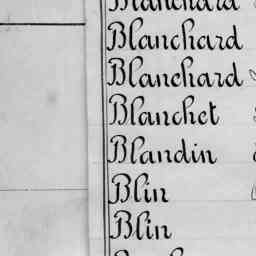 Blanchard
Blanchard
Blanchard
Blanchet
Blandin
Blin
Blin